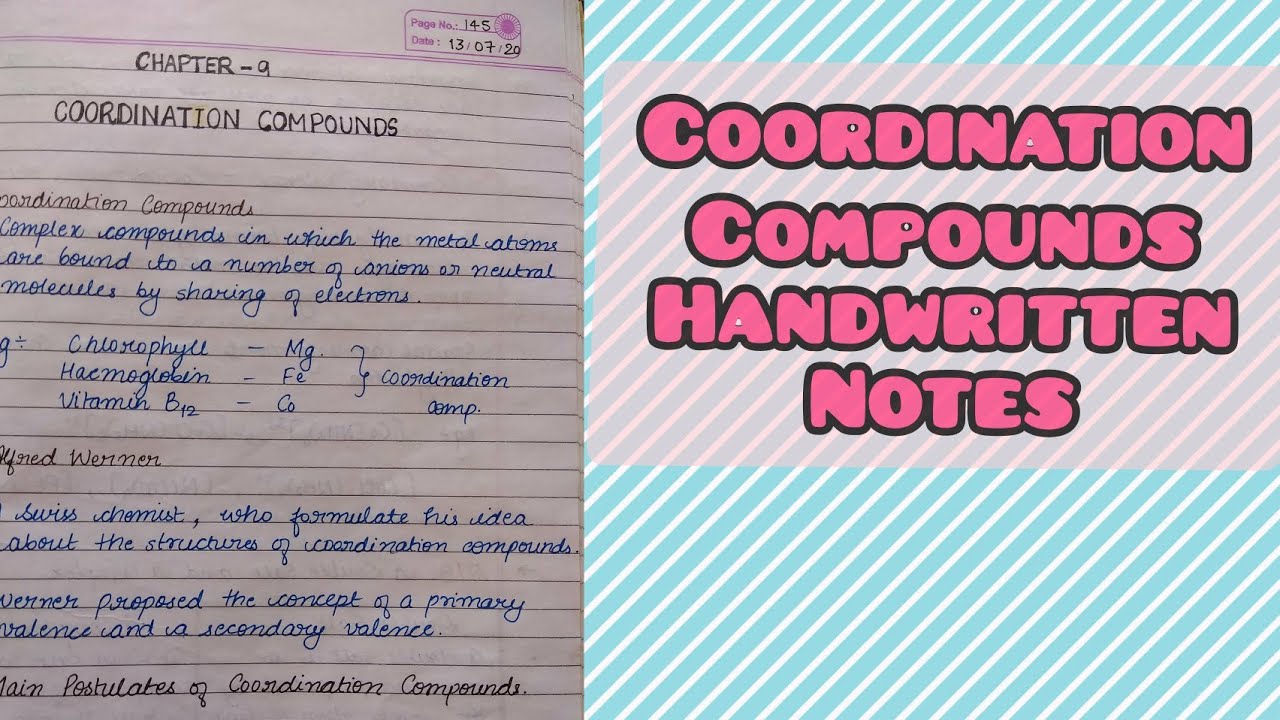 Page No.: 145
Date: 13/07/20
CHAPTER - 9
COORDINATION COMPOUNDS
oordination Compounds
Complex compounds in which the metal atoms
are bound to a number of anions or neutral
molecules by sharing of electrons.
g÷ Chlorophyll - Mg.
Haemoglobin - Fe } coordination
Vitamin B12 - Co comp.
lfred Werner
Swiss chemist, who formulate his idea
about the structures of coordination compounds.
Werner proposed the concept of a primary
valence and a secondary valence.
Main Postulates of Coordination Compounds.
COORDINATION
COMPOUNDS
HANDWRITTEN
NOTES